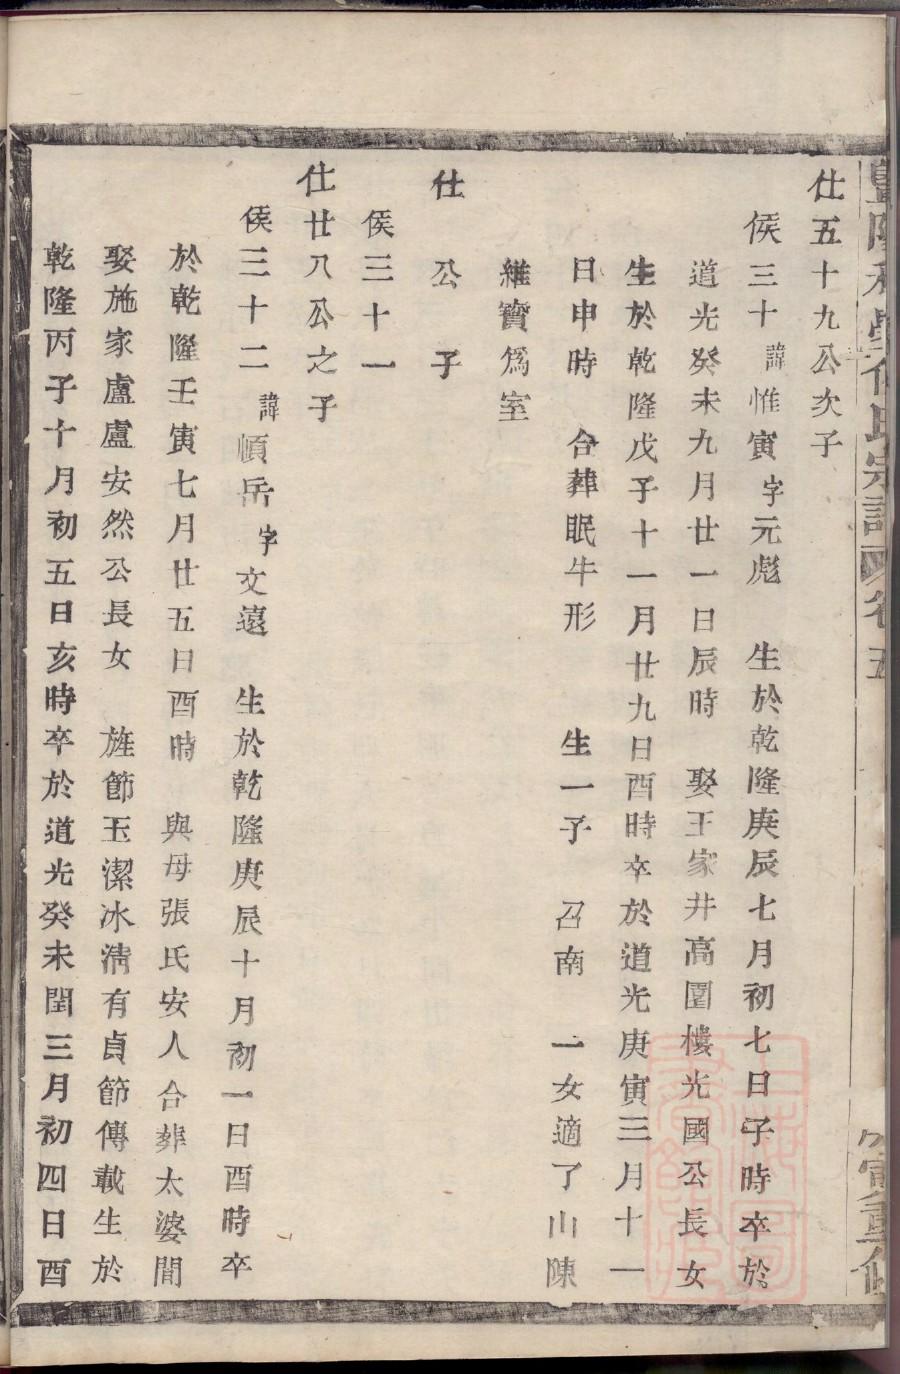 仕五十九公次子
侯三十諱惟寅字元彪 生於乾隆庚辰七月初七日子時卒於
道光癸未九月廿一日辰時 娶王家井高圍樓光國公長女
生於乾隆戊子十一月廿九日酉時卒於道光庚寅三月十一
日申時 合葬眠牛形 生一子 召南 一女適了山陳
維寶爲室
仕 公 子
侯三十一
仕廿八公之子
侯三十二諱順岳字文遠 生於乾隆庚辰十月初一日酉時卒
於乾隆壬寅七月廿五日酉時 與母張氏安人合葬太婆間
娶施家盧盧安然公長女 旌節玉潔冰淸有貞節傳載生於
乾隆丙子十月初五日亥時卒於道光癸未閏三月初四日酉